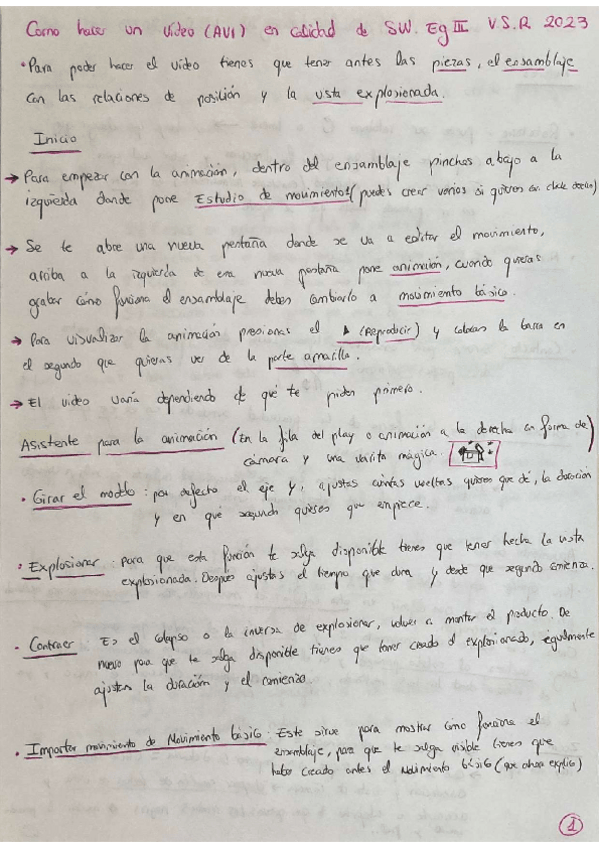 Como hacer un video (AVI) en calidad de SW. Eg III V.S.R 2023
• Para poder hacer el video tienes que tener antes las piezas, el ensamblaje
con las relaciones de posición y la vista explosionada.
Inicio
→ Para empezar con la animación, dentro del ensamblaje pinchas abajo a la
izquierda donde pone Estudio de movimiento 1 (puedes crear varios si quieres en click decho)
→ Se te abre una nueva pestaña donde se va a editar el movimiento,
arriba a la izquierda de esa nueva pestaña pone animación, cuando quieras
grabar cómo funciona el ensamblaje debes cambiarlo a movimiento básico.
→ Para visualizar la animación presionas el ▶ (Reproducir) y colocas la barra en
el segundo que quieras ver de la parte amarilla.
→ El video varía dependiendo de qué te piden primero.
Asistente para la animación (En la fila del play o animación a la derecha en forma de)
cámara y una varita mágica.
• Girar el modelo: por defecto el eje y, ajustas cuántas vueltas quieres que dé, la duración
y en qué segundo quieres que empiece.
• Explosionar: para que esta función te salga disponible tienes que tener hecha la vista
explosionada. Después ajustas el tiempo que dura y desde que segundo comienza.
• Contraer: Es el colapso o la inversa de explosionar, volver a montar el producto. De
nuevo para que te salga disponible tienes que tener creado el explosionado, igualmente
ajustas la duración y el comienzo.
• Importar movimiento de Movimiento básico: Este sirve para mostrar cómo funciona el
ensamblaje, para que te salga visible tienes que
haber creado antes el Movimiento básico (que ahora explico)
1